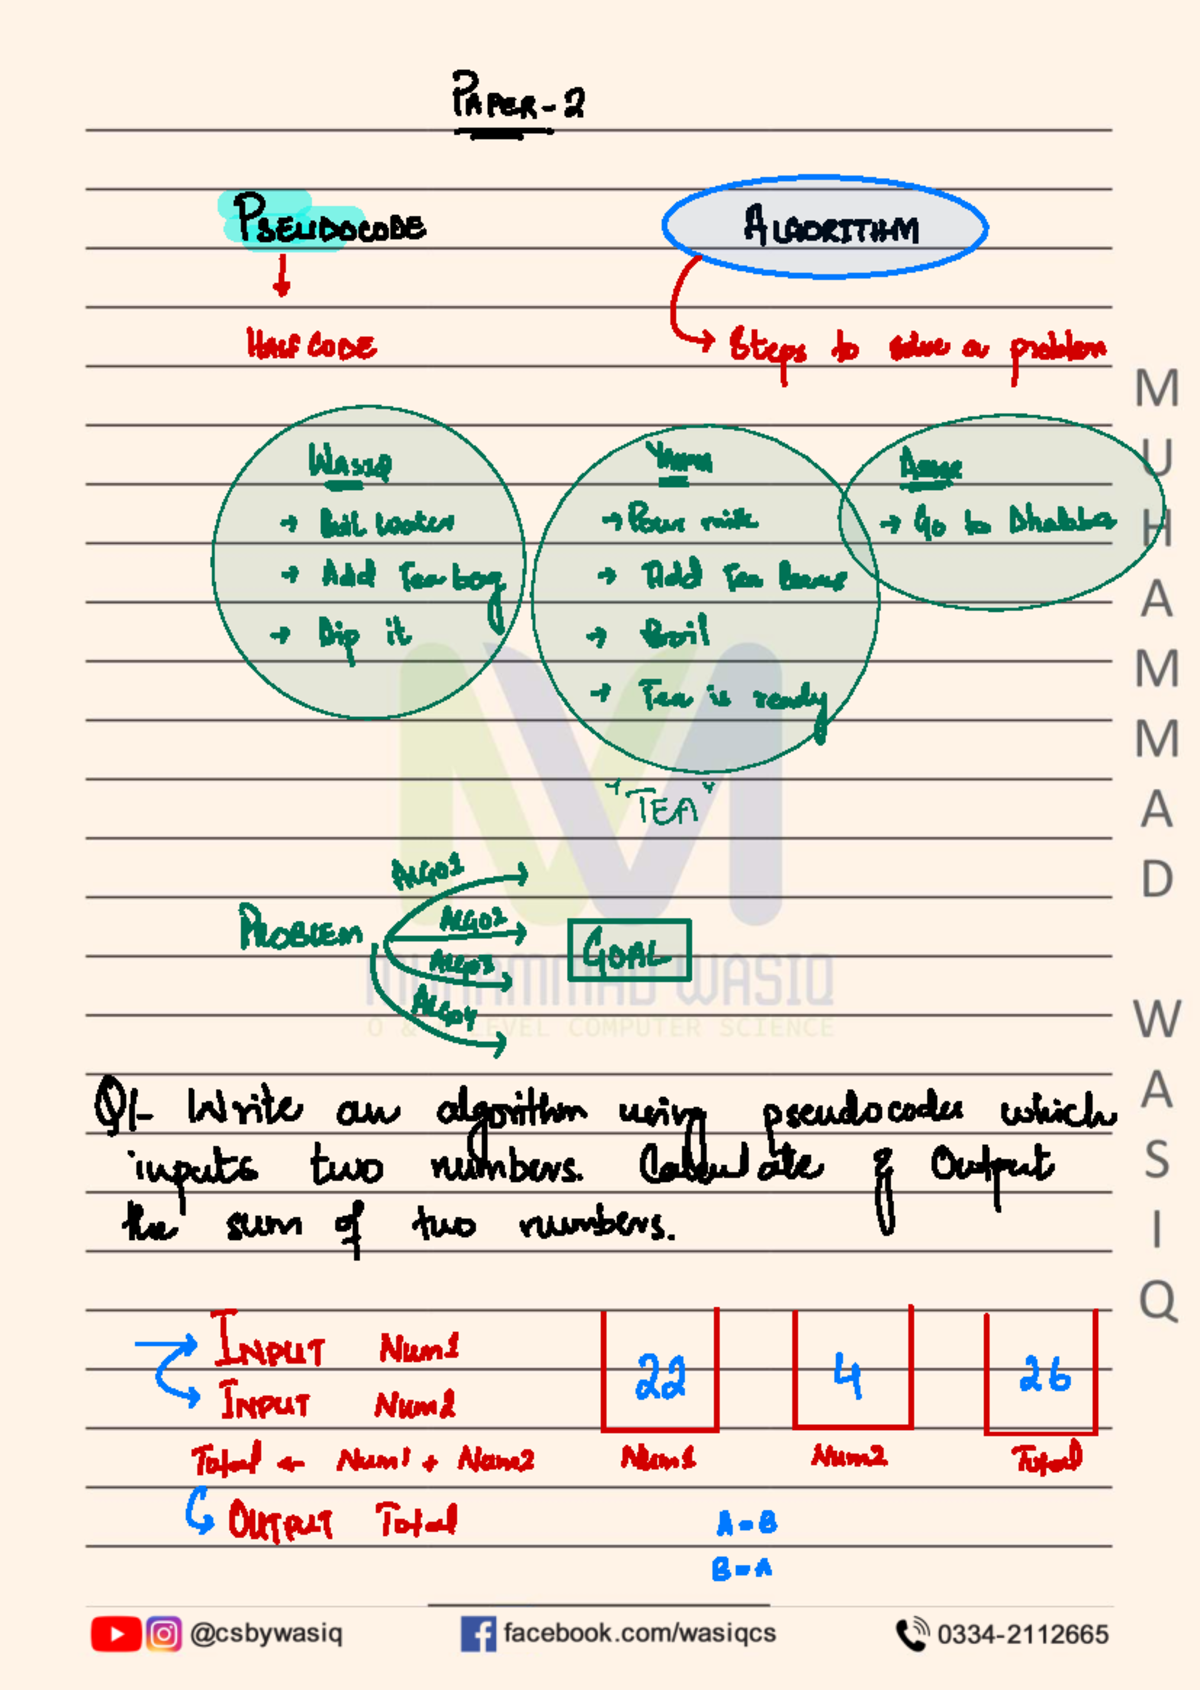 PAPER-2
PSEUDOCODE
ALGORITHM
HALF CODE
Steps to solve a problem
WASIQ
→ Boil water
→ Add Tea bag
→ Dip it
→ Pour milk
→ Add Tea leaves
→ Boil
→ Tea is ready
→ Go to Dhabba
"TEA"
PROBLEM
ALGO1
ALGO2
ALGO3
ALGO4
GOAL
MUHAMMAD WASIQ
O & A LEVEL COMPUTER SCIENCE
Q1- Write an algorithm using pseudocode which
inputs two numbers. Calculate & Output
the sum of two numbers.
INPUT Num1
INPUT Num2
Total ← Num1 + Num2
OUTPUT Total
22 4 26
Num1 Num2 Total
A = B
B = A
MUHAMMAD WASIQ
@csbywasiq
facebook.com/wasiqcs
0334-2112665